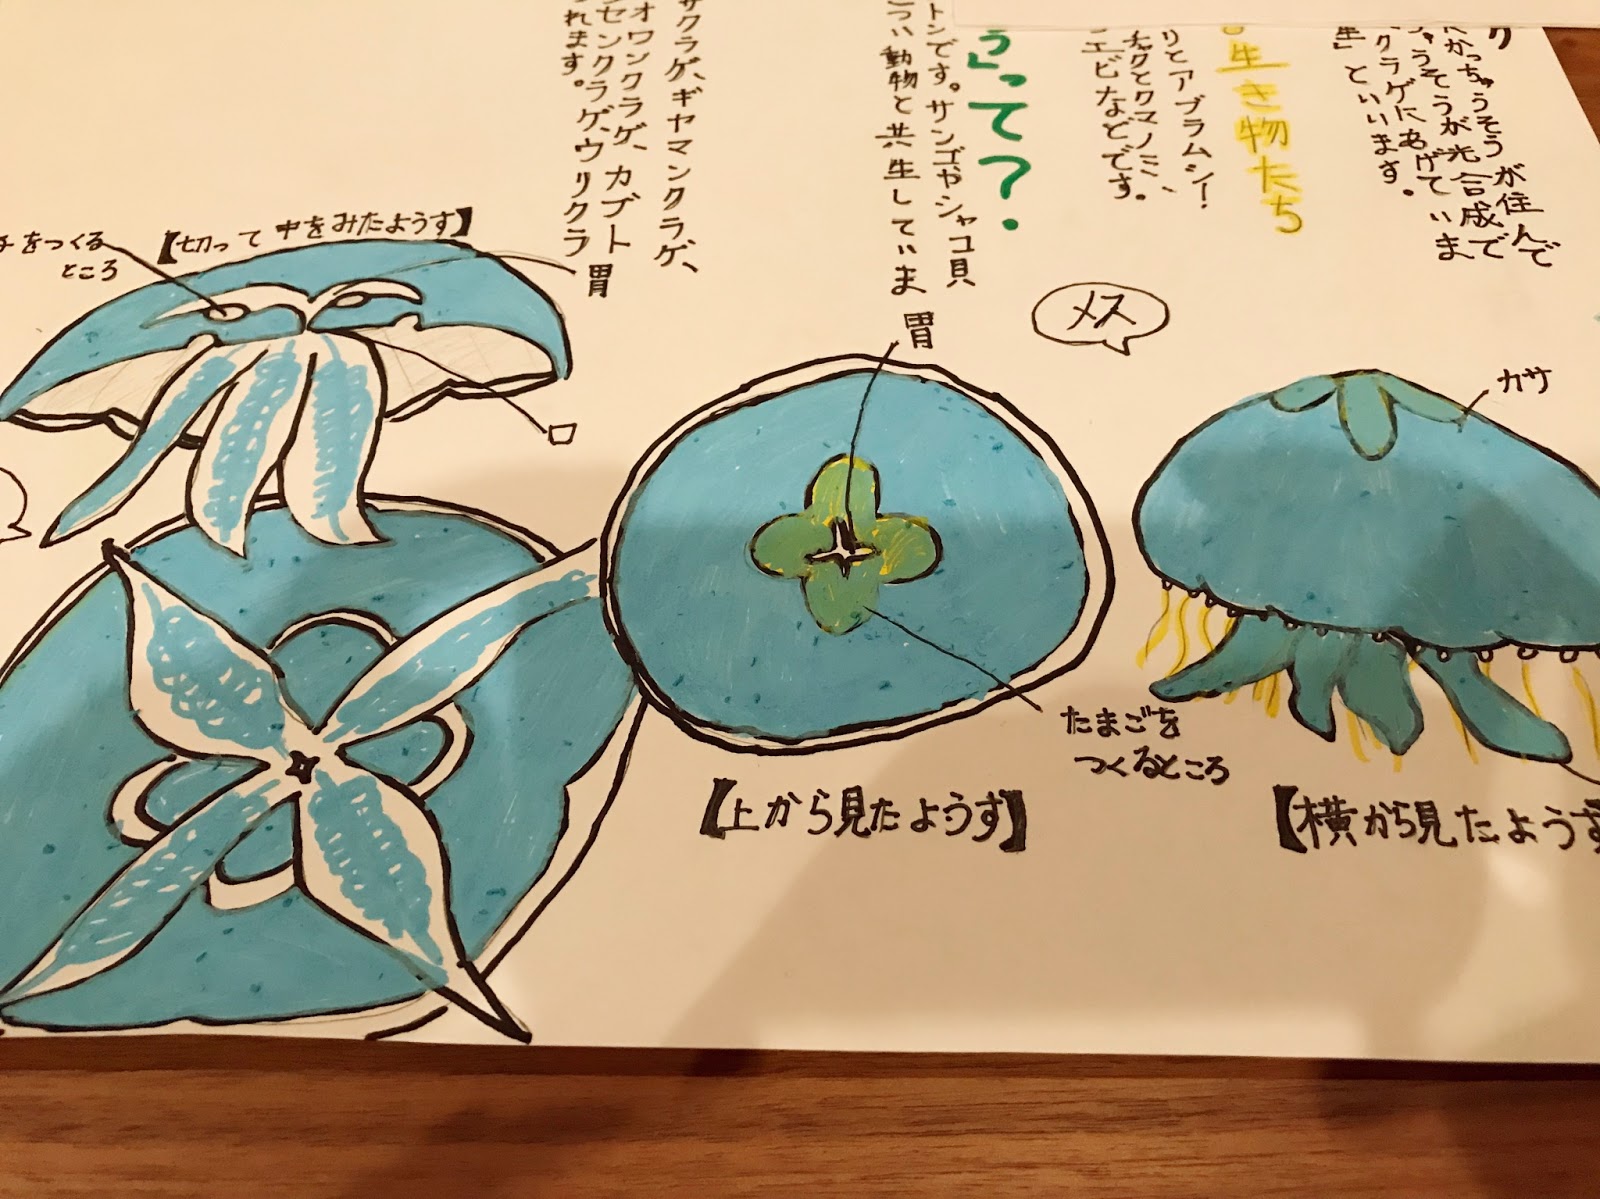 が住んで
かっちゅうそうが光合成で
クラゲにあげていま
といいます。
生き物たち
とアブラムシ！
とクマノミ、
エビなどです。
」って？
トンです。サンゴやシャコ貝
動物と共生していま
サクラゲ、ギヤマンクラゲ、
オワンクラゲ、カブト
センクラゲ、ウリクラ
れます。
【切って中をみたようす】
をつくる
ところ
胃
口
胃
メス
カサ
たまごを
つくるところ
【上から見たようす】
【横から見たようす